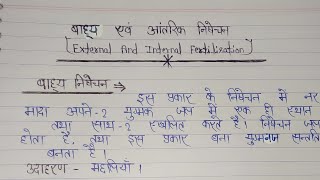 बाह्य एवं आंतरिक निषेचन
[External And Internal Fertilization]
बाह्य निषेचन →
इस प्रकार के निषेचन में नर
मादा अपने-2 युग्मक जल में एक ही स्थान
तथा साथ-2 स्खलित करते हैं। निषेचन जल
होता है. तथा इस प्रकार बना युग्मनज सन्तति
बनता है।
उदाहरण - मछलियाँ।